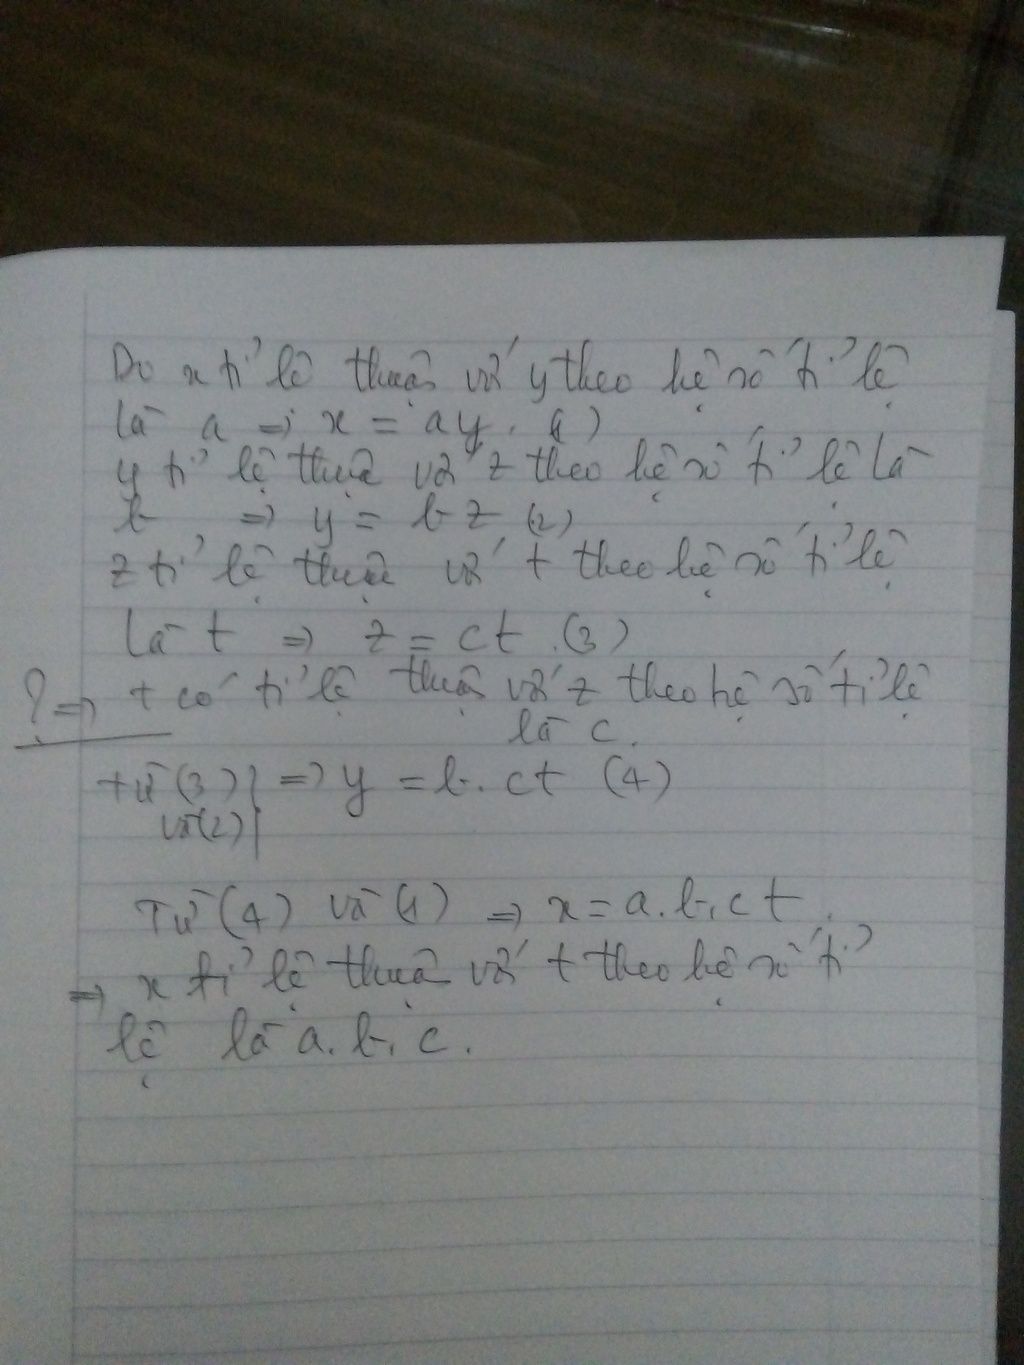 Do x tỉ lệ thuận với y theo hệ số tỉ lệ
là a => x = ay. (1)
y tỉ lệ thuận với z theo hệ số tỉ lệ là
b => y = bz (2)
z tỉ lệ thuận với t theo hệ số tỉ lệ
là t => z = ct. (3)
? => t có tỉ lệ thuận với z theo hệ số tỉ lệ
là c.
Từ (3) => y = b.ct (4)
và (2)
Từ (4) và (1) => x = a.b.ct.
=> x tỉ lệ thuận với t theo hệ số tỉ
lệ là a.b.c.